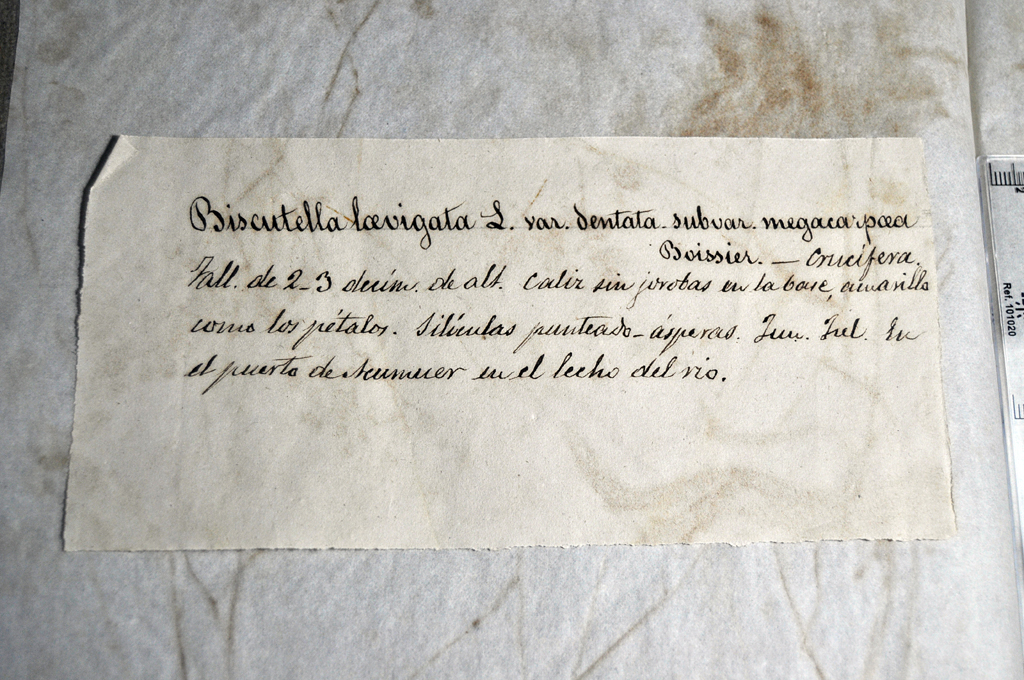 Biscutella lævigata L. var. dentata subvar. megacarpæa
Boissier. — Crucifera.
Tall. de 2-3 decím. de alt. Caliz sin jorobas en la base, amarillo
como los pétalos. Silículas punteado-ásperas. Jun. Jul. En
el puerto de Aumuer en el lecho del rio.
2
Ref. 101020